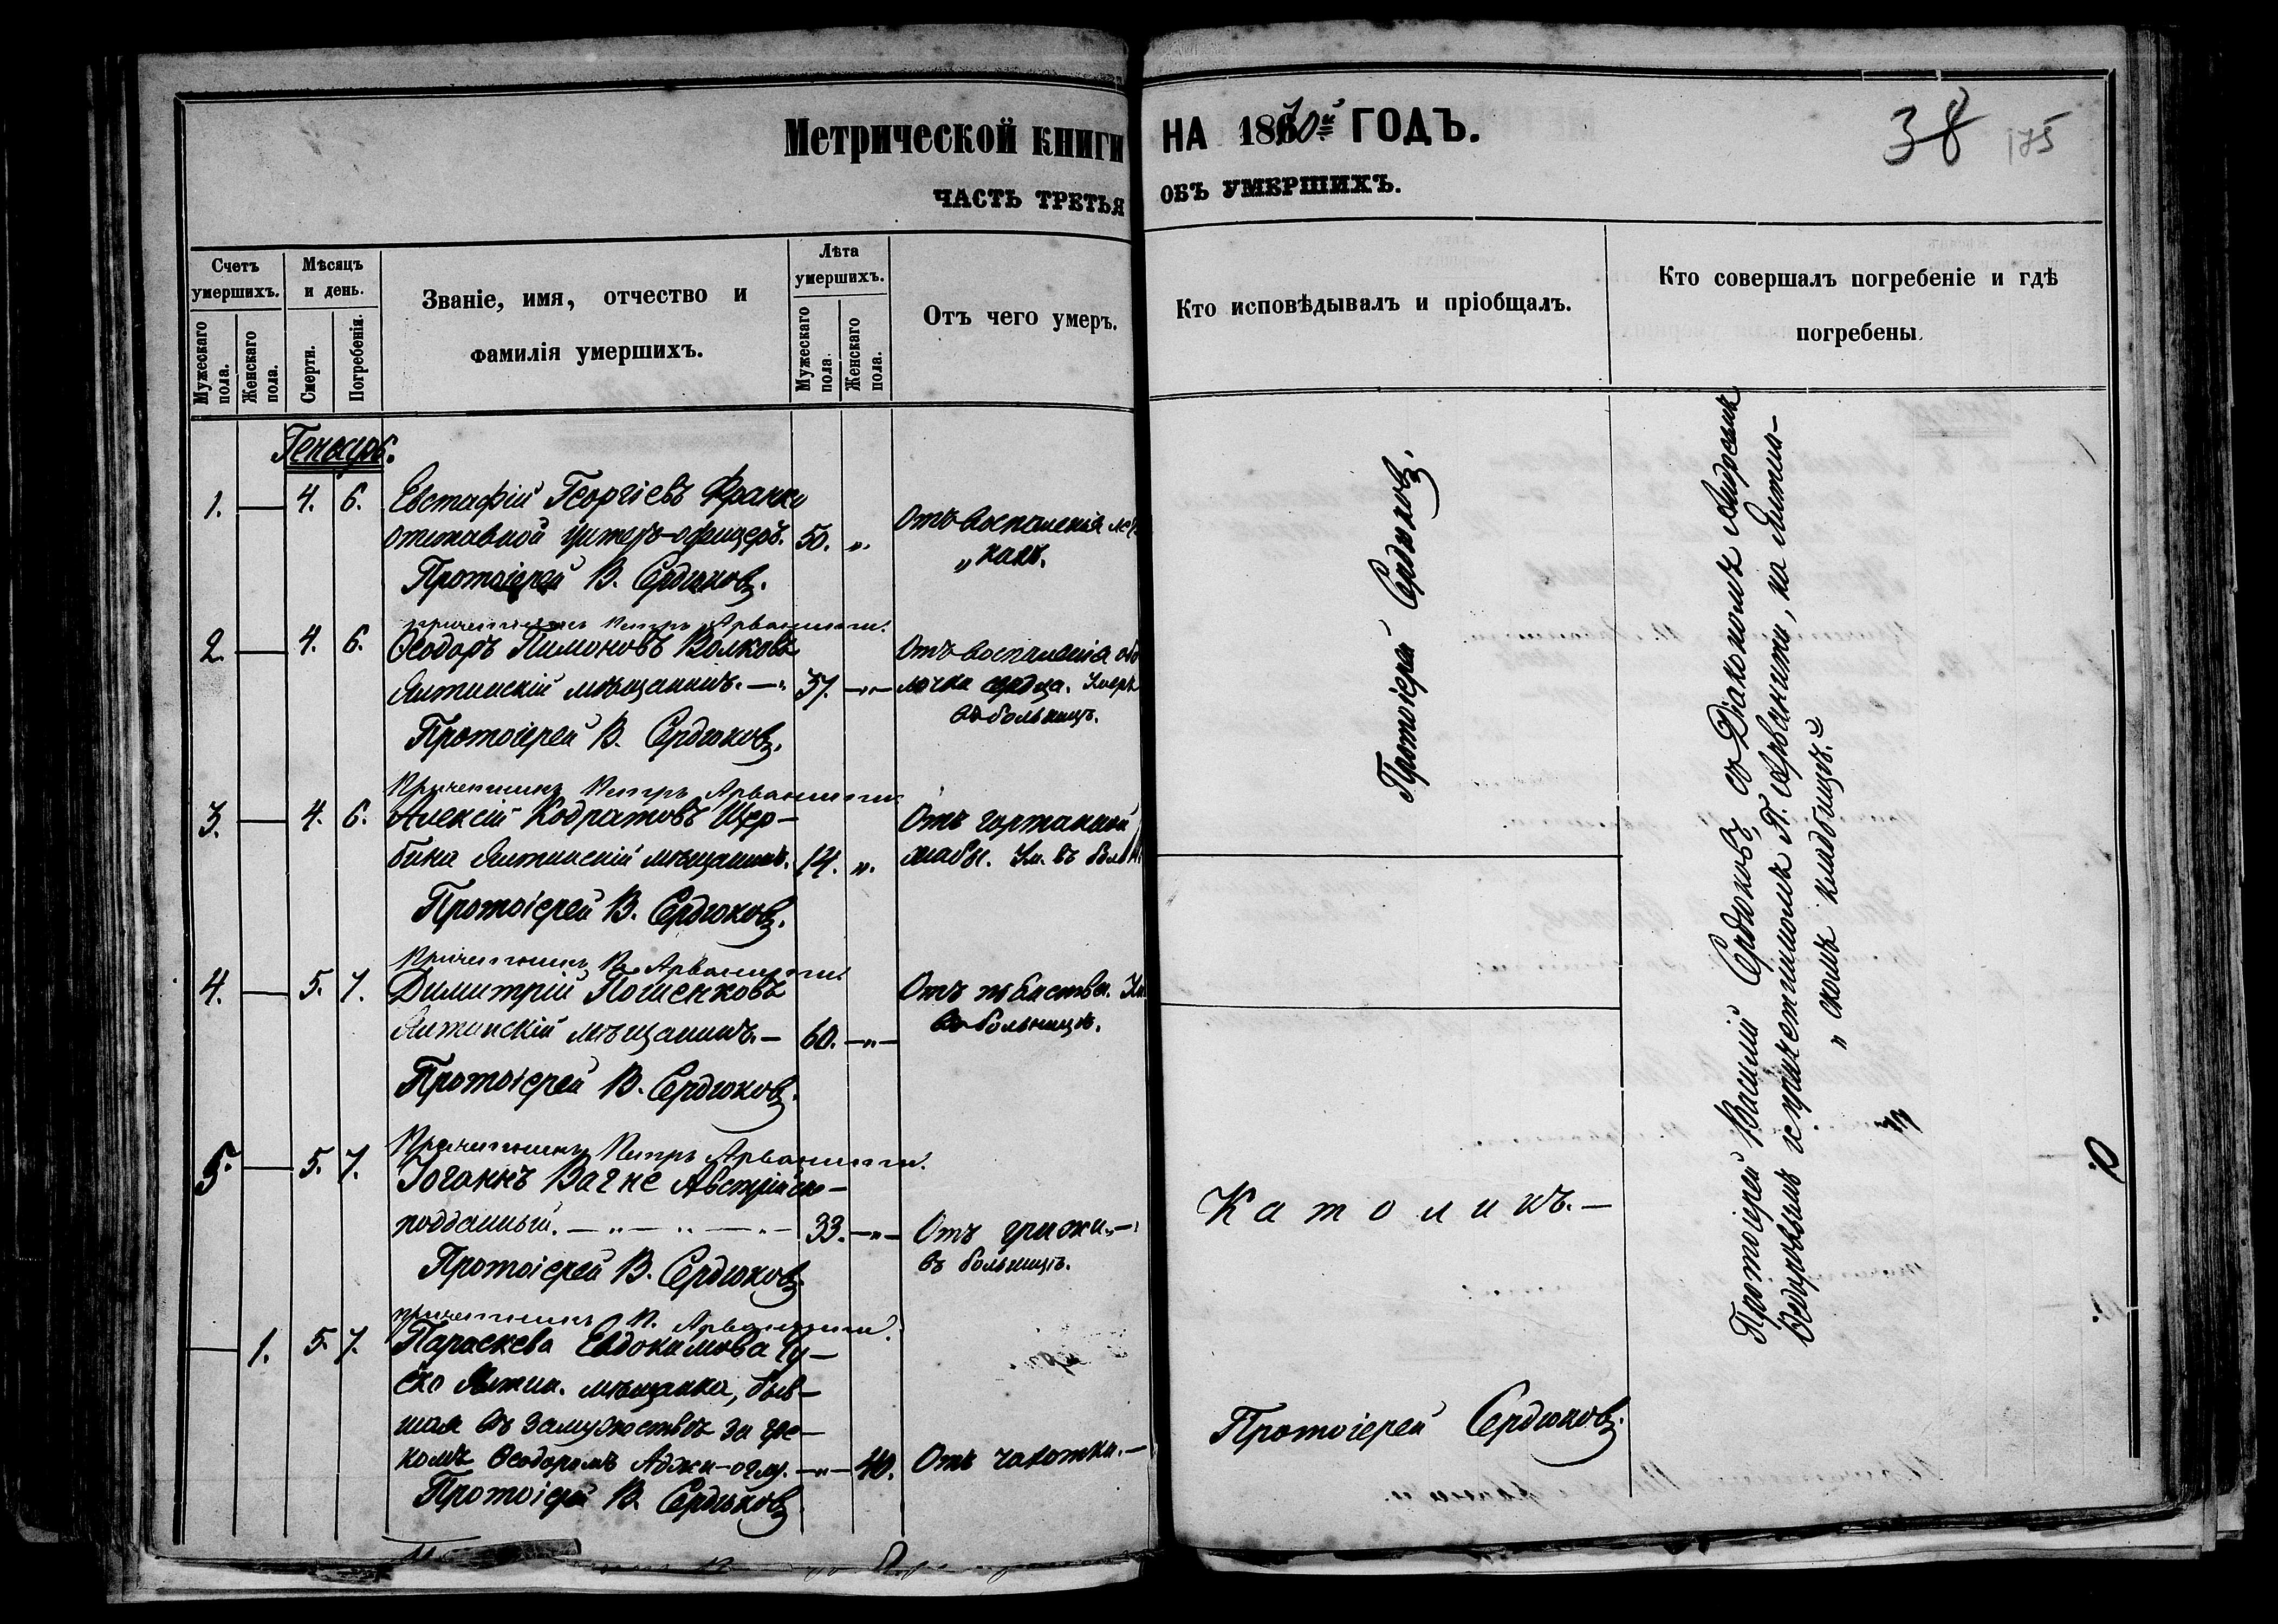 Метрической книги
часть третья
на 1870й годъ.
объ умершихъ.
38
175
Счетъ умершихъ.
Мѣсяцъ и день.
Званіе, имя, отчество и
фамилія умершихъ.
Лѣта умершихъ.
Отъ чего умеръ.
Кто исповѣдывалъ и пріобщалъ.
Кто совершалъ погребеніе и гдѣ
погребены.
Мужескаго пола.
Женскаго пола.
Смерти.
Погребенія.
Мужескаго пола.
Женскаго пола.
Генварь.
1. — 4. 6. Евстафій Георгіевъ
отставной унтеръ-офицеръ. 50. „.
Отъ воспаленія
Протоіерей В. Сердюковъ.
Причетникъ Петръ Арванити.
2. — 4. 6. Ѳеодоръ Пимоновъ Волковъ
Ялтинскій мѣщанинъ. — 37. —„—
Отъ воспаленія обо-
лочки сердца. Умеръ
въ больницѣ.
Протоіерей В. Сердюковъ.
Причетникъ Петръ Арванити
3. — 4. 6. Алексій Кодратовъ Щер-
бина Ялтинскій мѣщанинъ. 14. „.
Отъ гортанной
жабы. Ум. въ бол
Протоіерей В. Сердюковъ.
Причетникъ П. Арванити.
4. — 5. 7. Димитрій
Ялтинскій мѣщанинъ. — 60. —„—
Отъ Ум.
въ больницѣ.
Протоіерей В. Сердюковъ.
Причетникъ Петръ Арванити.
5. — 5. 7. Іоганнъ Вагне Австрійско-
подданный. — „ — „ — „ — 33. —„—
Отъ грижи. —
въ больницѣ.
Протоіерей В. Сердюковъ
Причетникъ П. Арванити.
— 1. 5. 7. Параскева Евдокимова Гу-
ско Ялтин. мѣщанка, быв-
шая въ замужествѣ за гре-
комъ Ѳеодоромъ Аджи-оглу. —„— 40. Отъ чахотки. —
Протоіерей В. Сердюковъ.
Протоіерей Сердюковъ.
Католикъ. —
Протоіерей Сердюковъ.
Протоіерей Василій Сердюковъ, съ Діакономъ Андреемъ
и причетникомъ П. Арванити, на Ялтин-
„ скомъ кладбищѣ.